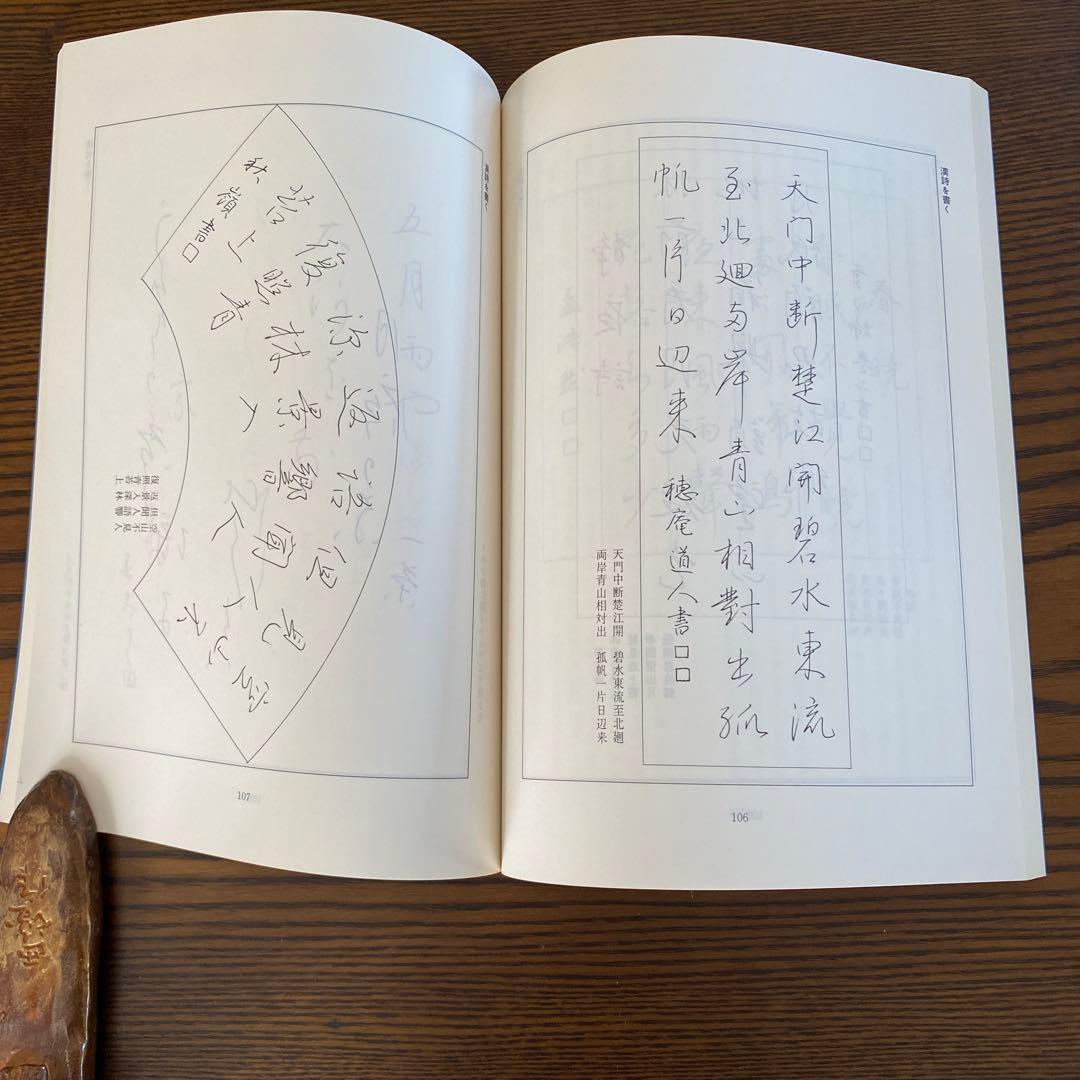 漢詩を書く
天门中断楚江開碧水東流
至北廻両岸青山相對出孤
帆一片日辺来 穂庵道人書□□
天門中断楚江開 碧水東流至北廻
両岸青山相対出 孤帆一片日辺来
106
漢詩を書く
空山不
見人
但聞人
語響
返景入
深林
復照青
苔上
秋嶺書□
空山不見人
但聞人語響
返景入深林
復照青苔上
107